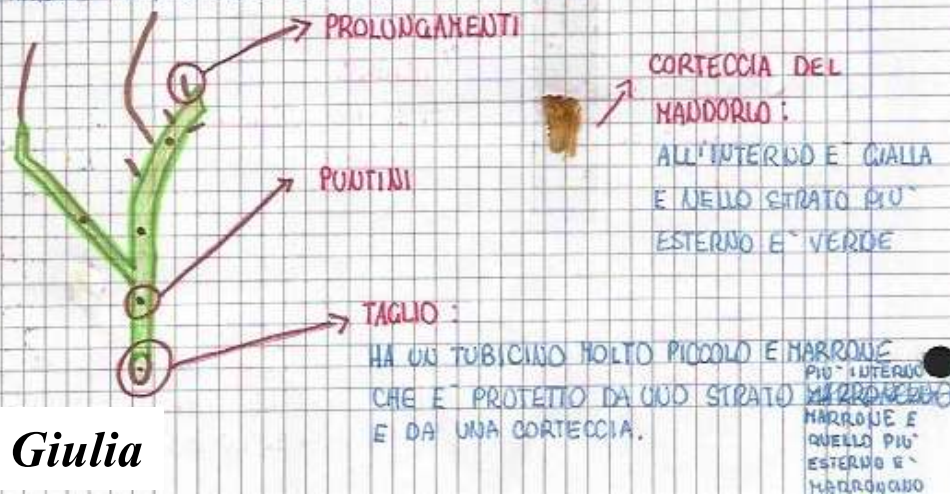 PROLUNGAMENTI
CORTECCIA DEL
MANDORLO :
ALL'INTERNO E` GIALLA
E NELLO STRATO PIU`
ESTERNO E` VERDE
PUNTINI
TAGLIO :
HA UN TUBICINO MOLTO PICCOLO E MARRONE
CHE E` PROTETTO DA UNO STRATO
PIU` INTERNO
MARRONE E
QUELLO PIU`
ESTERNO E`
MARRONCINO
E DA UNA CORTECCIA.
Giulia